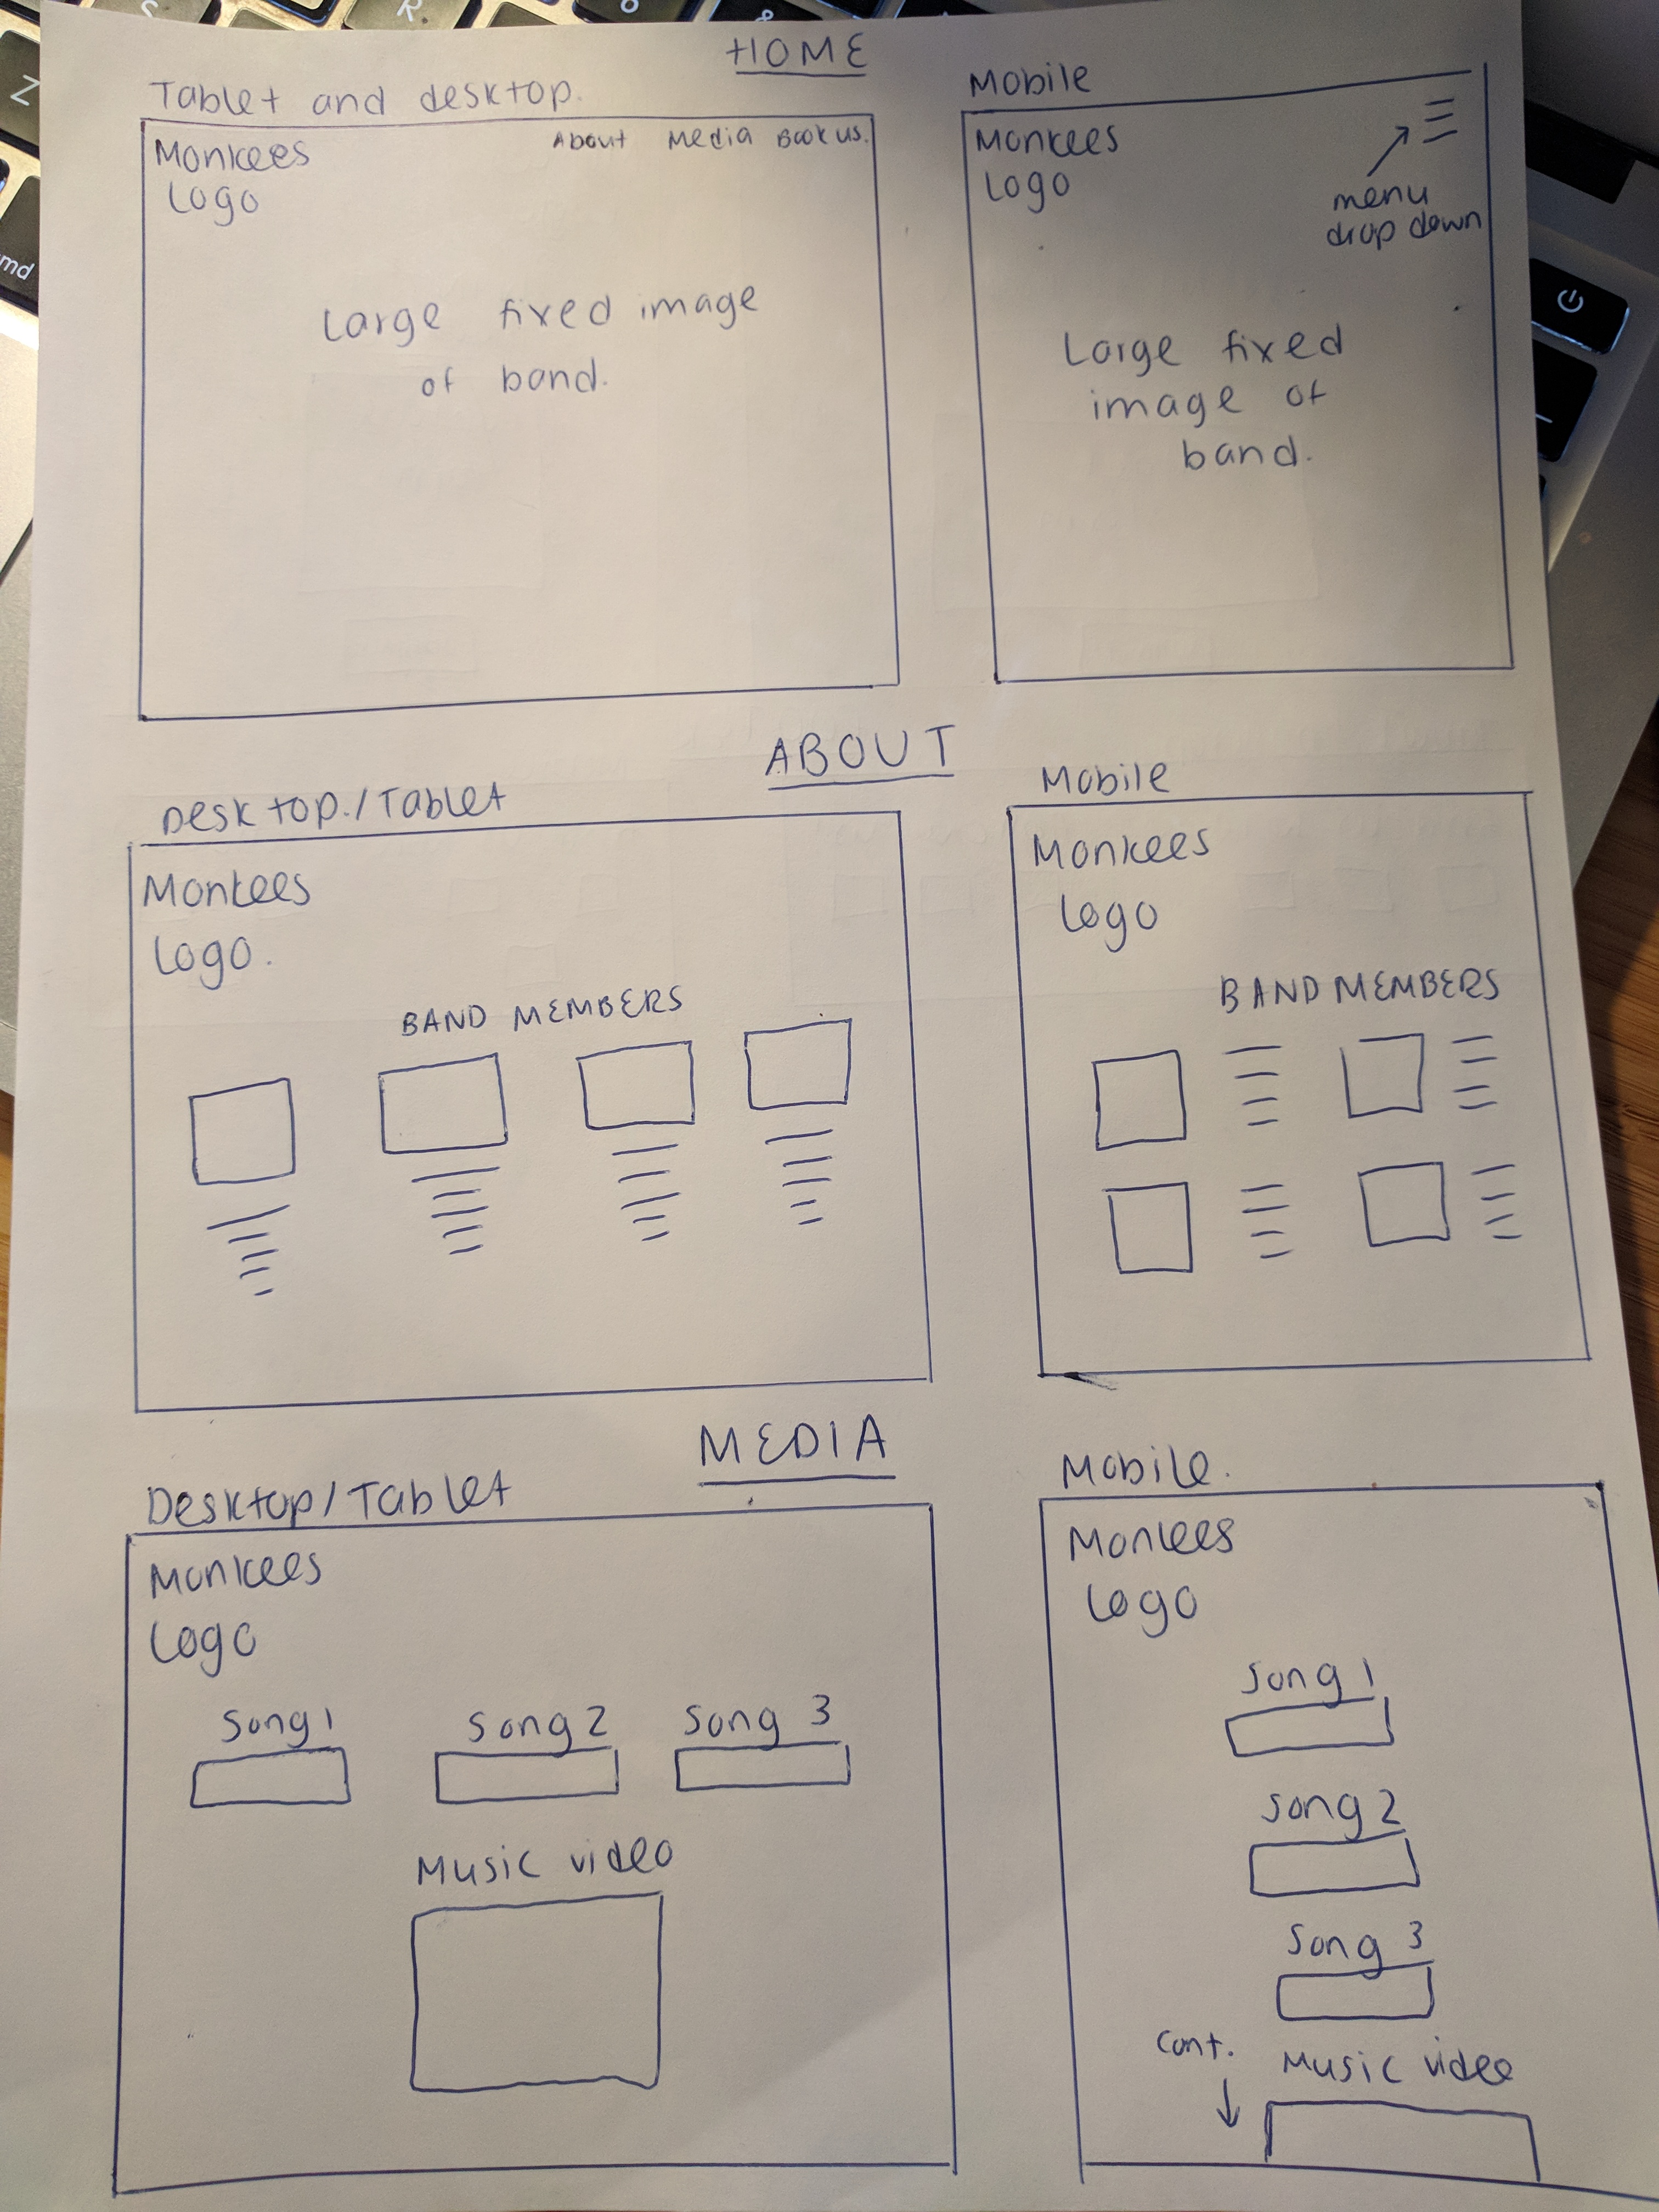 HOME
Tablet and desktop.
Monkees
Logo
About Media Book us.
Large fixed image
of band.
Mobile
Monkees
Logo
menu
drop down
Large fixed
image of
band.
ABOUT
Desktop./Tablet
Monkees
Logo.
BAND MEMBERS
Mobile
Monkees
Logo
BAND MEMBERS
MEDIA
Desktop/Tablet
Monkees
Logo
Song 1 Song 2 Song 3
Music video
Mobile.
Monkees
Logo
Song 1
Song 2
Song 3
Cont.
Music video
Z
R
md